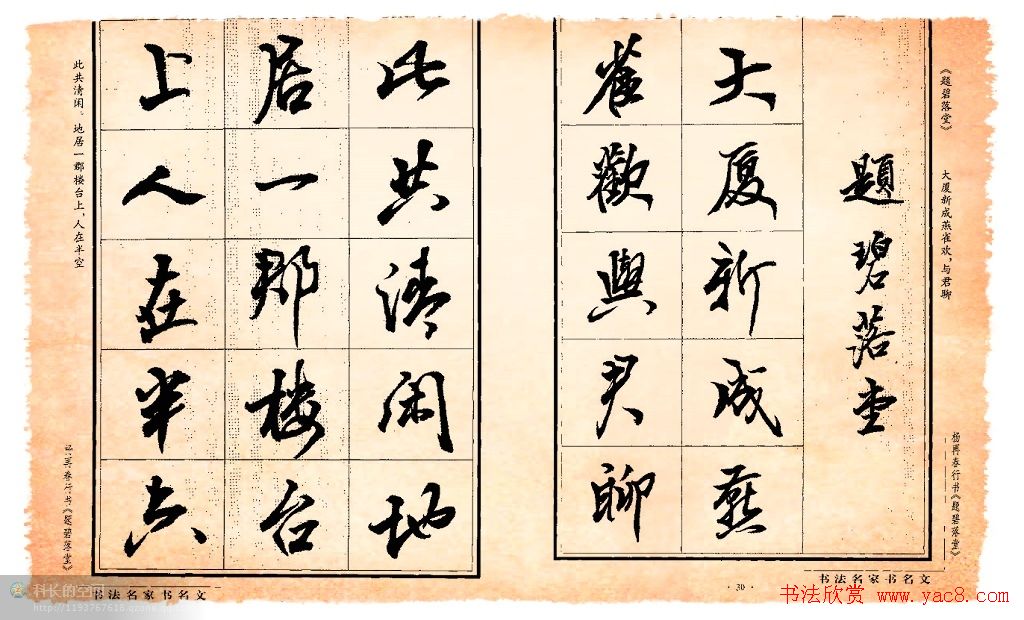 《题碧落堂》 大厦新成燕雀欢，与君聊
杨再春行书《题碧落堂》
題碧落堂
大厦新成燕
雀歡與君聊
此共清闲地
居一郡楼台
上人在半空
此共清闲。地居一郡楼台上，人在半空
再春行书《题碧落堂》
书法名家书名文
· 30 ·
书法名家书名文
科长的空间
书法欣赏 www.yac8.com